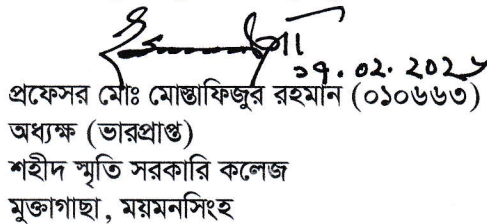 প্রফেসর মোঃ মোস্তাফিজুর রহমান (০১০৬৬৩)
অধ্যক্ষ (ভারপ্রাপ্ত)
শহীদ স্মৃতি সরকারি কলেজ
মুক্তাগাছা, ময়মনসিংহ